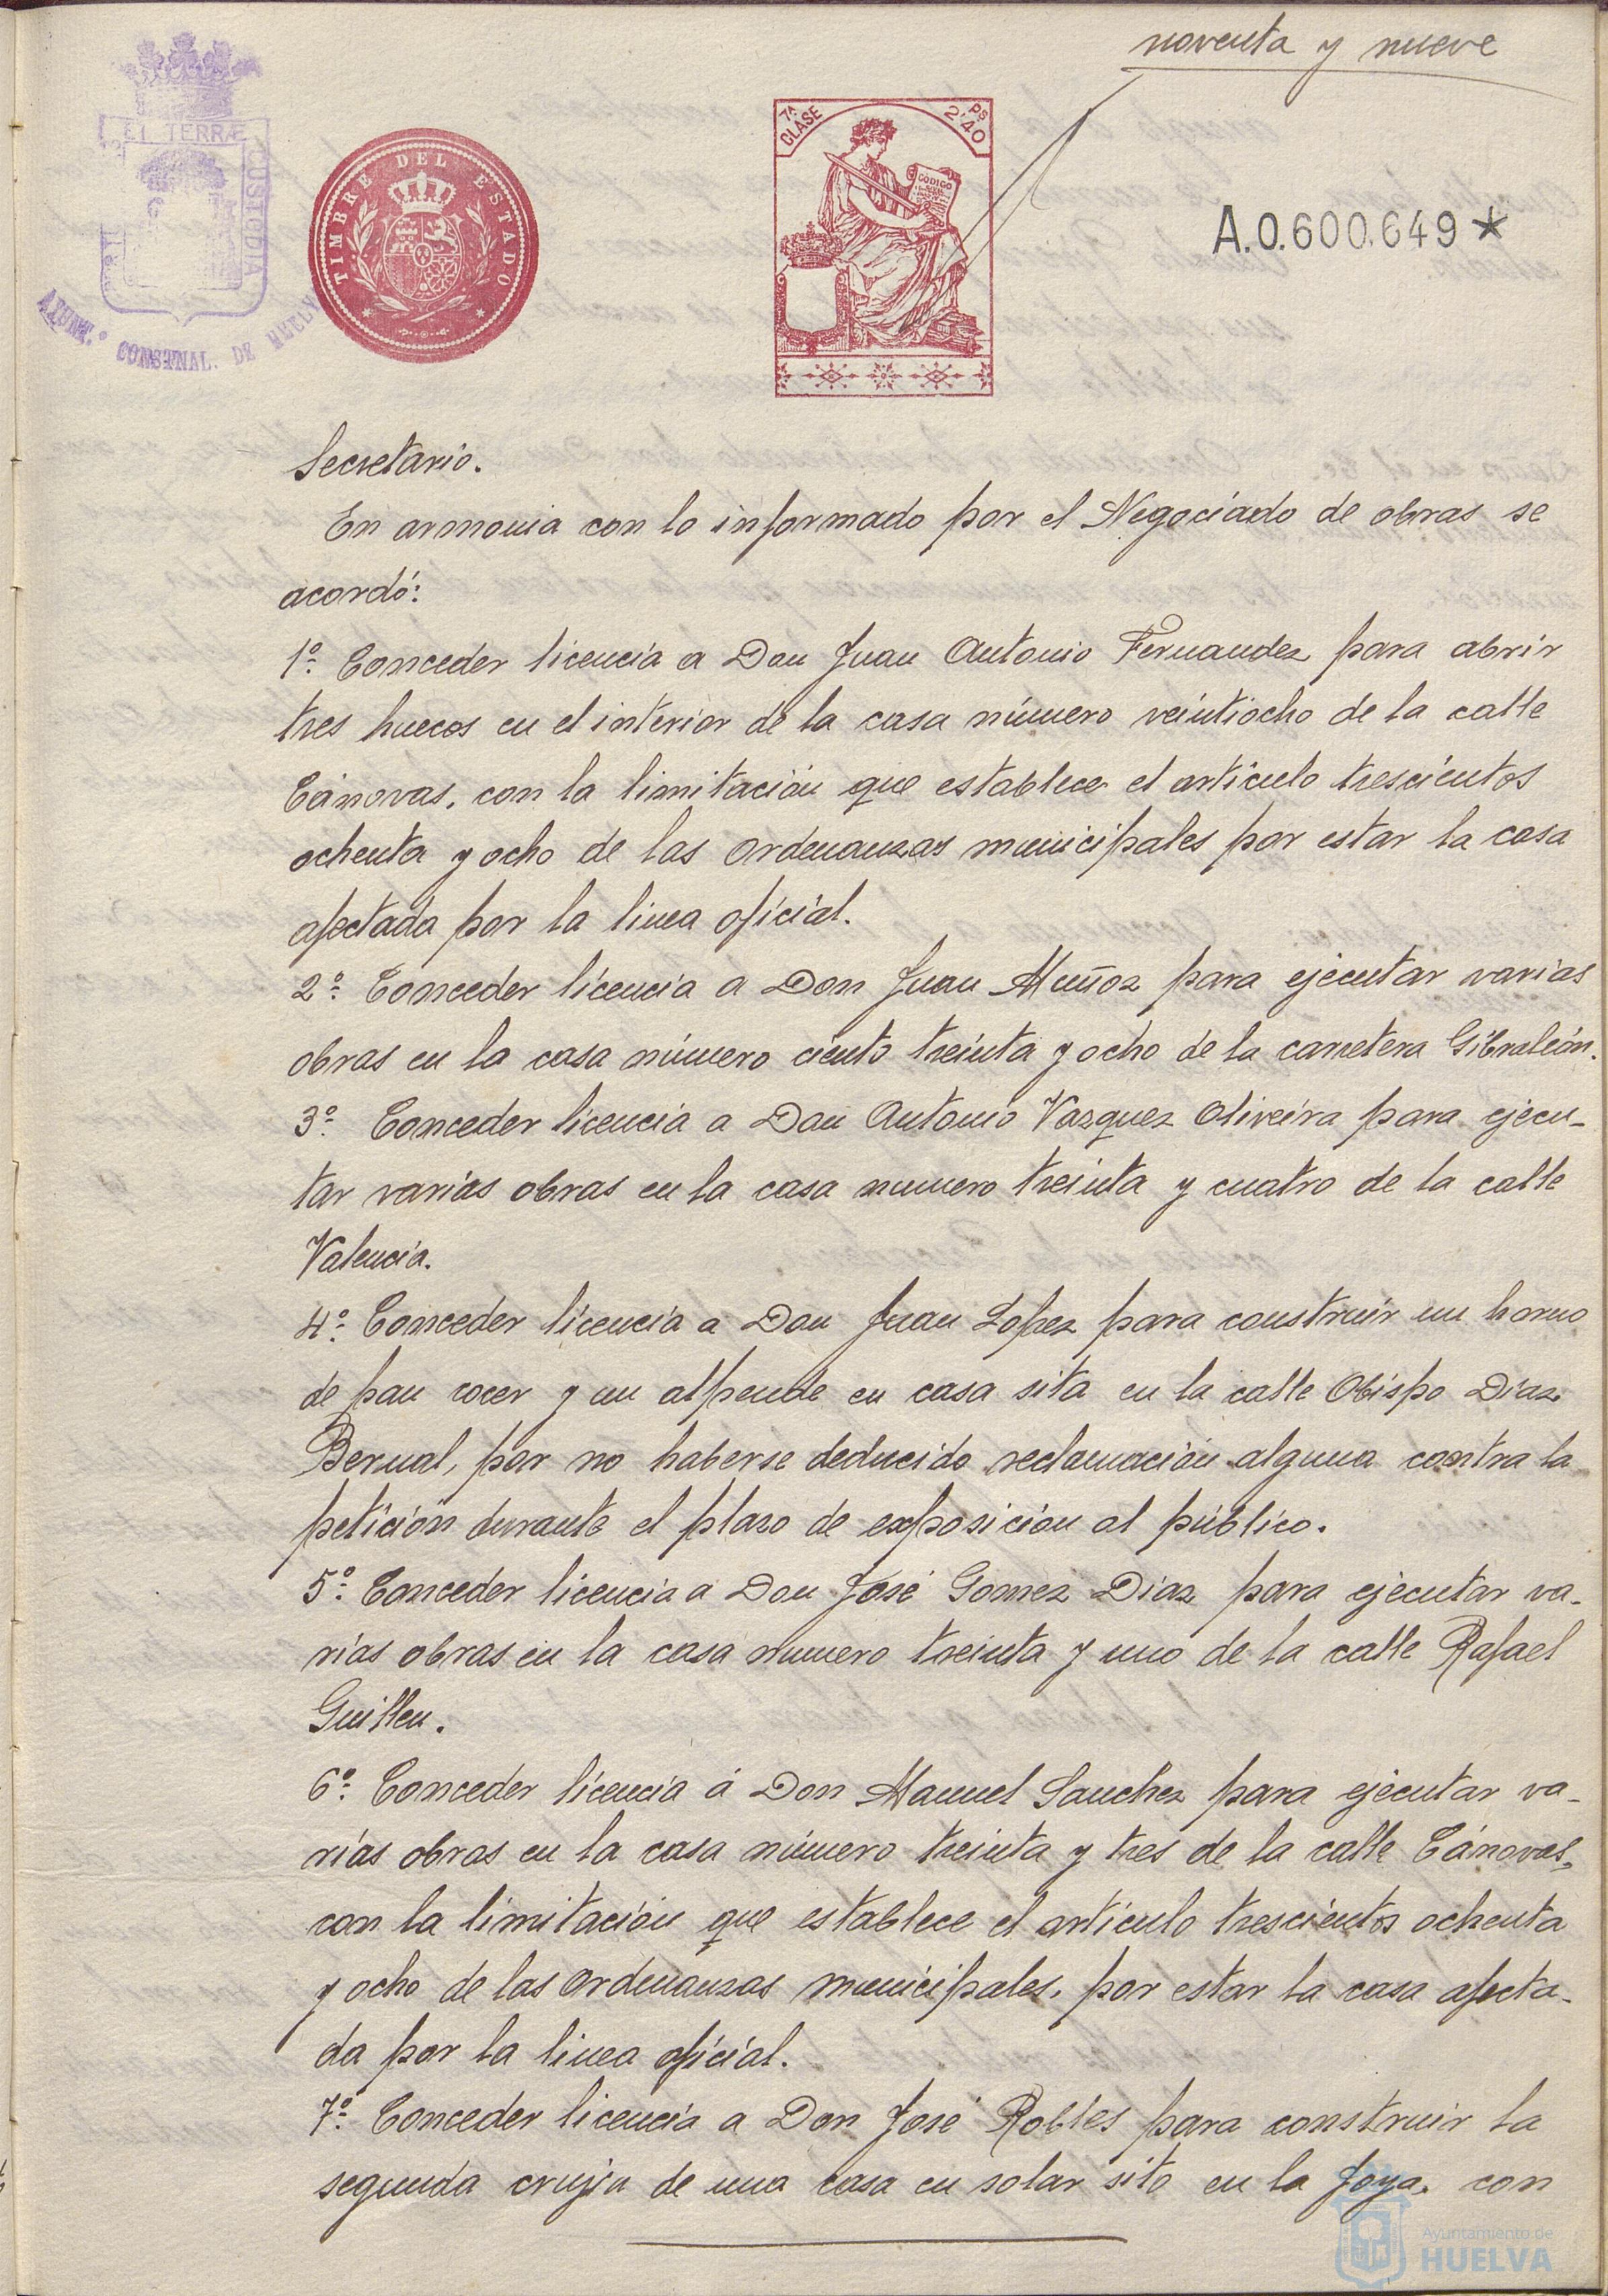 noventa y nueve
ET TERRÆ
CUSTODIA
AYUNT.º CONSTNAL. DE HUELVA
TIMBRE DEL ESTADO
7ª CLASE
2'40 PS
CODIGO
A.0.600.649*
Secretario.
En armonia con lo informado por el Negociado de obras se
acordó:
1º. Conceder licencia a Don Juan Antonio Fernandez para abrir
tres huecos en el interior de la casa número veintiocho de la calle
Cánovas, con la limitación que establece el artículo trescientos
ochenta y ocho de las Ordenanzas municipales por estar la casa
afectada por la linea oficial.
2º. Conceder licencia a Don Juan Muñoz para ejecutar varias
obras en la casa número ciento treinta y ocho de la carretera Gibraleón.
3º. Conceder licencia a Don Antonio Vazquez Oliveira para ejecu-
tar varias obras en la casa numero treinta y cuatro de la calle
Valencia.
4º. Conceder licencia a Don Juan Lopez para construir un horno
de pan cocer y un alpende en casa sita en la calle Obispo Diaz
Bernal, por no haberse deducido reclamación alguna contra la
petición durante el plazo de exposición al público.
5º. Conceder licencia a Don José Gomez Diaz para ejecutar va-
rias obras en la casa numero treinta y uno de la calle Rafael
Guillen.
6º. Conceder licencia á Don Manuel Sanchez para ejecutar va-
rias obras en la casa número treinta y tres de la calle Cánovas,
con la limitación que establece el artículo trescientos ochenta
y ocho de las Ordenanzas municipales, por estar la casa afecta-
da por la linea oficial.
7º. Conceder licencia a Don José Robles para construir la
segunda crujia de una casa en solar sito en la Joya, con
Ayuntamiento de
HUELVA